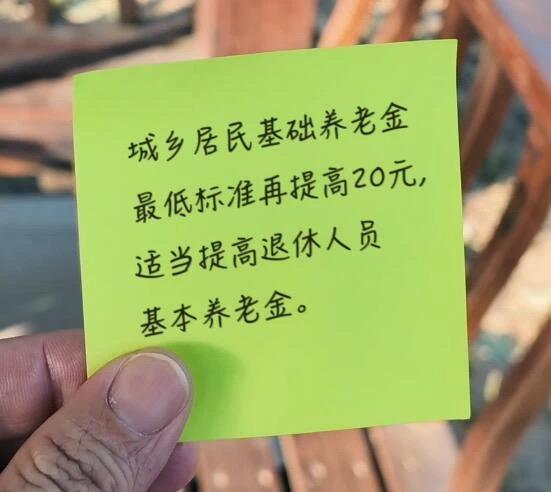 城乡居民基础养老金
最低标准再提高20元,
适当提高退休人员
基本养老金。